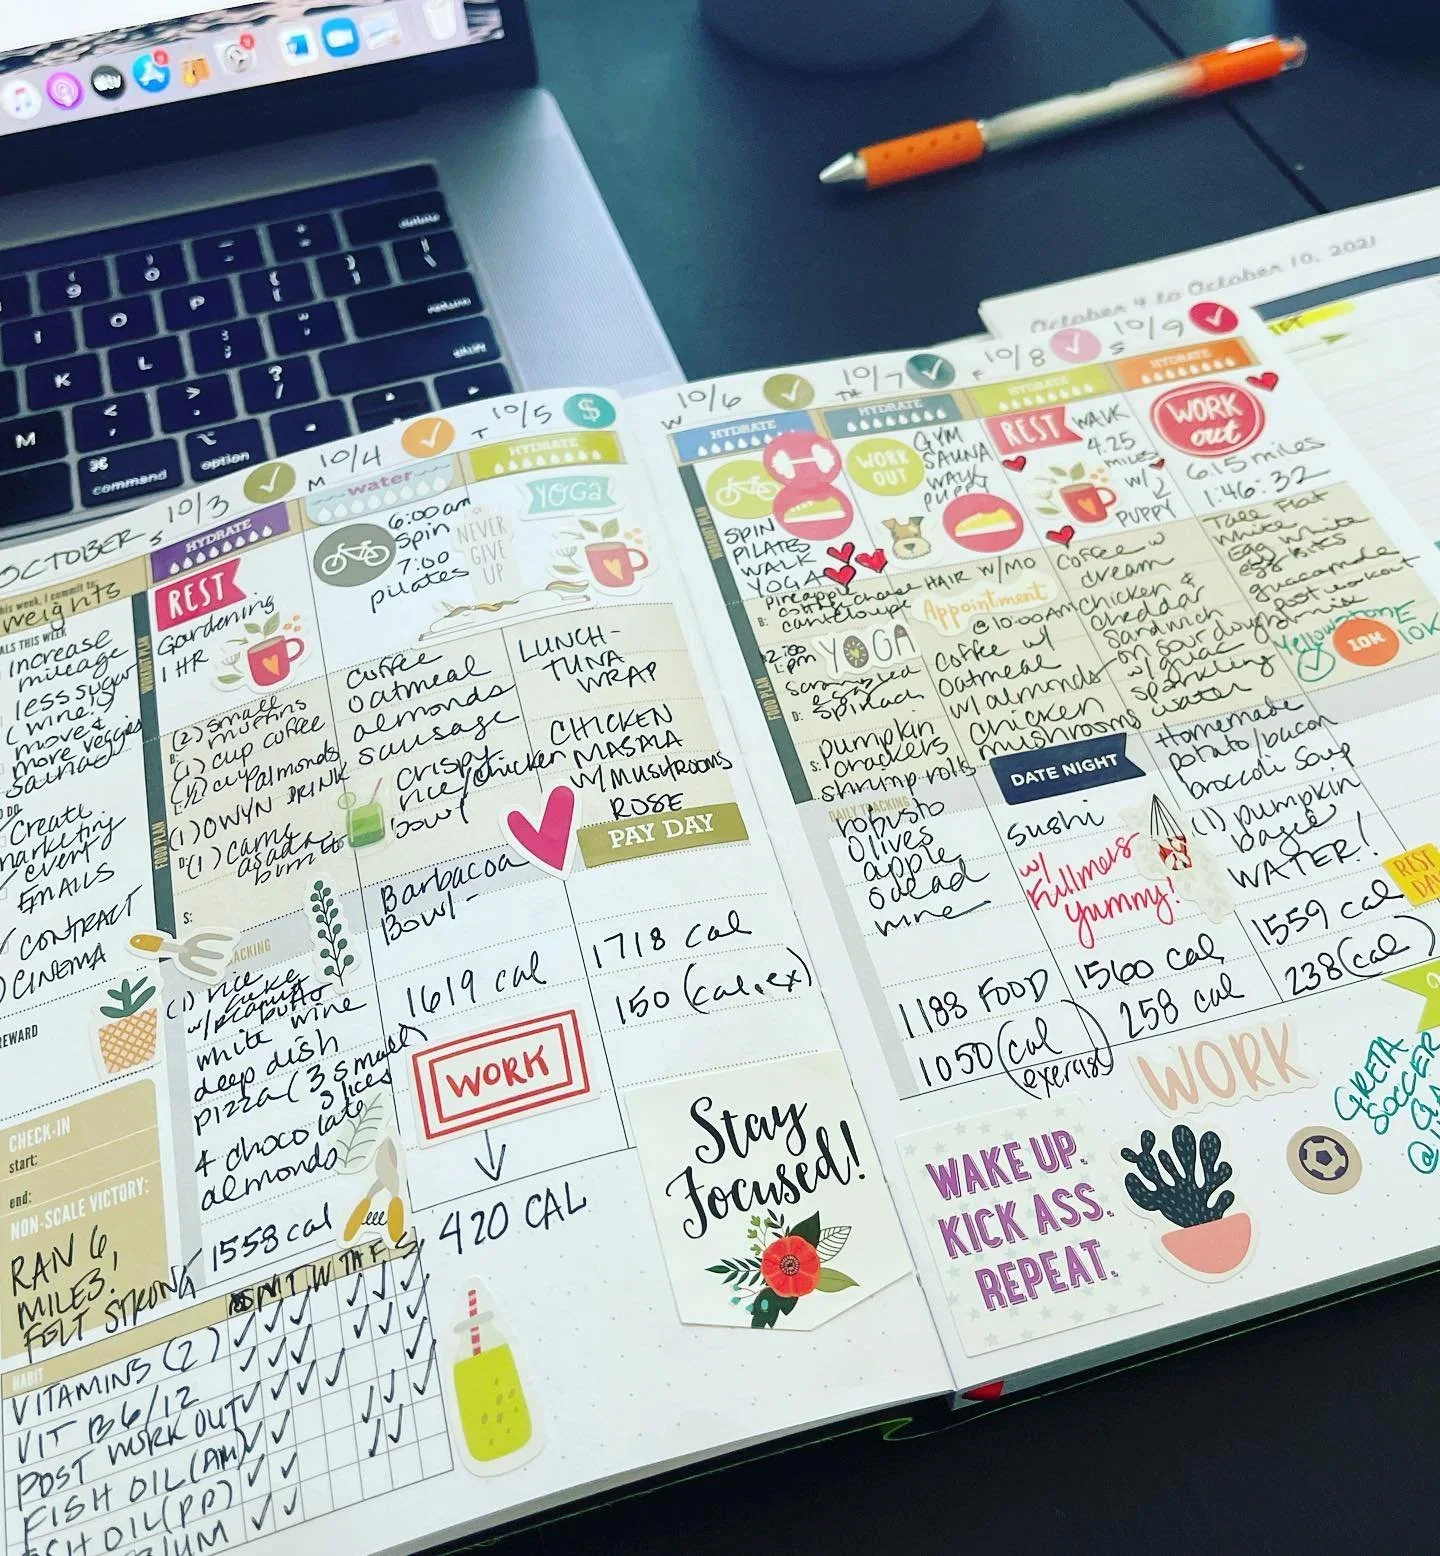 OCTOBER
this week, I commit to:
weights
increase
mileage
less sugar
(wine!)
more
more veggies
Create
marketing
EMAILS
CONTRACT
CINEMA
CHECK-IN
start:
end:
NON-SCALE VICTORY:
RAN 6
MILES!
FELT STRONG
HABIT
VITAMINS (2)
VIT B6/12
POST WORKOUT
FISH OIL (AM)
S 10/3
HYDRATE
WORKOUT PLAN
REST
Gardening
1 HR
FOOD PLAN
B:
(2) small
muffins
(1) cup coffee
(1/2) cup almonds
(1) OWYN DRINK
D:
(1) carne
asada
S:
(1) rice
cake
w/peanut
white wine
deep dish
pizza (3 small)
slices
4 chocolate
almonds
1558 cal
M 10/4
water
6:00 am
spin
7:00
pilates
coffee
oatmeal
almonds
sausage
crispy
rice/chicken
bowl
Barbacoa
Bowl -
1619 cal
WORK
420 CAL
T 10/5
$
HYDRATE
YOGA
NEVER
GIVE
UP
LUNCH-
TUNA
WRAP
CHICKEN
MASALA
W/MUSHROOMS
ROSE
PAY DAY
1718 cal
150 (cal.ex)
Stay
Focused!
W 10/6
HYDRATE
WORKOUT PLAN
SPIN
PILATES
WALK
YOGA
FOOD PLAN
B:
pineapple
canteloupe
12:00
pm
YOGA
scrambled
spinach
D:
pumpkin
crackers
S:
shrimp rolls
DAILY TRACKING
robusto
olives
apple
salad
wine
1188 FOOD
1050 (cal
TH 10/7
HYDRATE
WORK
OUT
GYM
SAUNA
WALK
PUPPY
HAIR W/MO
Appointment
@10:00AM
coffee w/
oatmeal
w/almonds
chicken
mushrooms
DATE NIGHT
sushi
w/
Fullmers
yummy!
1560 cal
258 cal
F 10/8
REST
WALK
4.25
miles
w/2
PUPPY
coffee w
cream
chicken &
cheddar
sandwich
on sourdough
w/guac
sparkling
water
Homemade
potato/bacon
broccoli soup
(1) pumpkin
WATER!
1559 cal
238 (cal)
S 10/9
HYDRATE
WORK
out
6.15 miles
1:46:32
Flat
White
Egg White
guacamole
post workout
Yellowstone
10K
10K
REST
DAY
WORK
WAKE UP.
KICK ASS.
REPEAT.
GRETA
SOCCER
October 4 to October 10, 2021
command
option
return